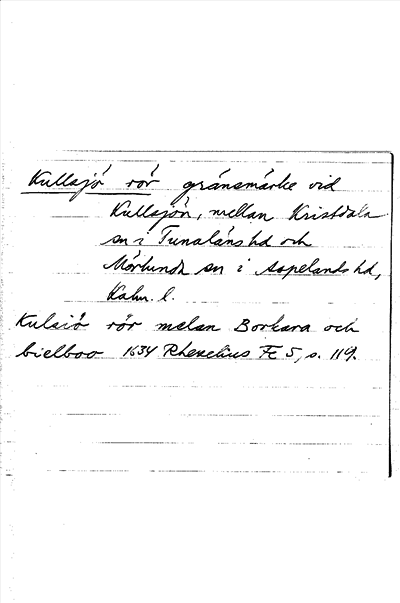 Kullsjö rör gränsmärke vid
Kullsjön, mellan Kristdala
sn i Tunaläns hd och
Mörlunda sn i Aspelands hd,
Kalm. l.
Kulsiö rör melan Borkara och
bielboo 1634 Rhezelius Fc 5, s. 119.